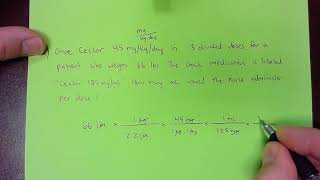 mg
kg·day
Give Ceclor 45 mg/kg/day in 3 divided doses for a
patient who weighs 66 lbs. The stock medication is labeled
"Ceclor 125 mg/mL. How many mL would the nurse administer
per dose?
66 lbs × 1 kg × 45 mg × 1 mL ×
2.2 lbs 1 kg · 1 day 125 mg